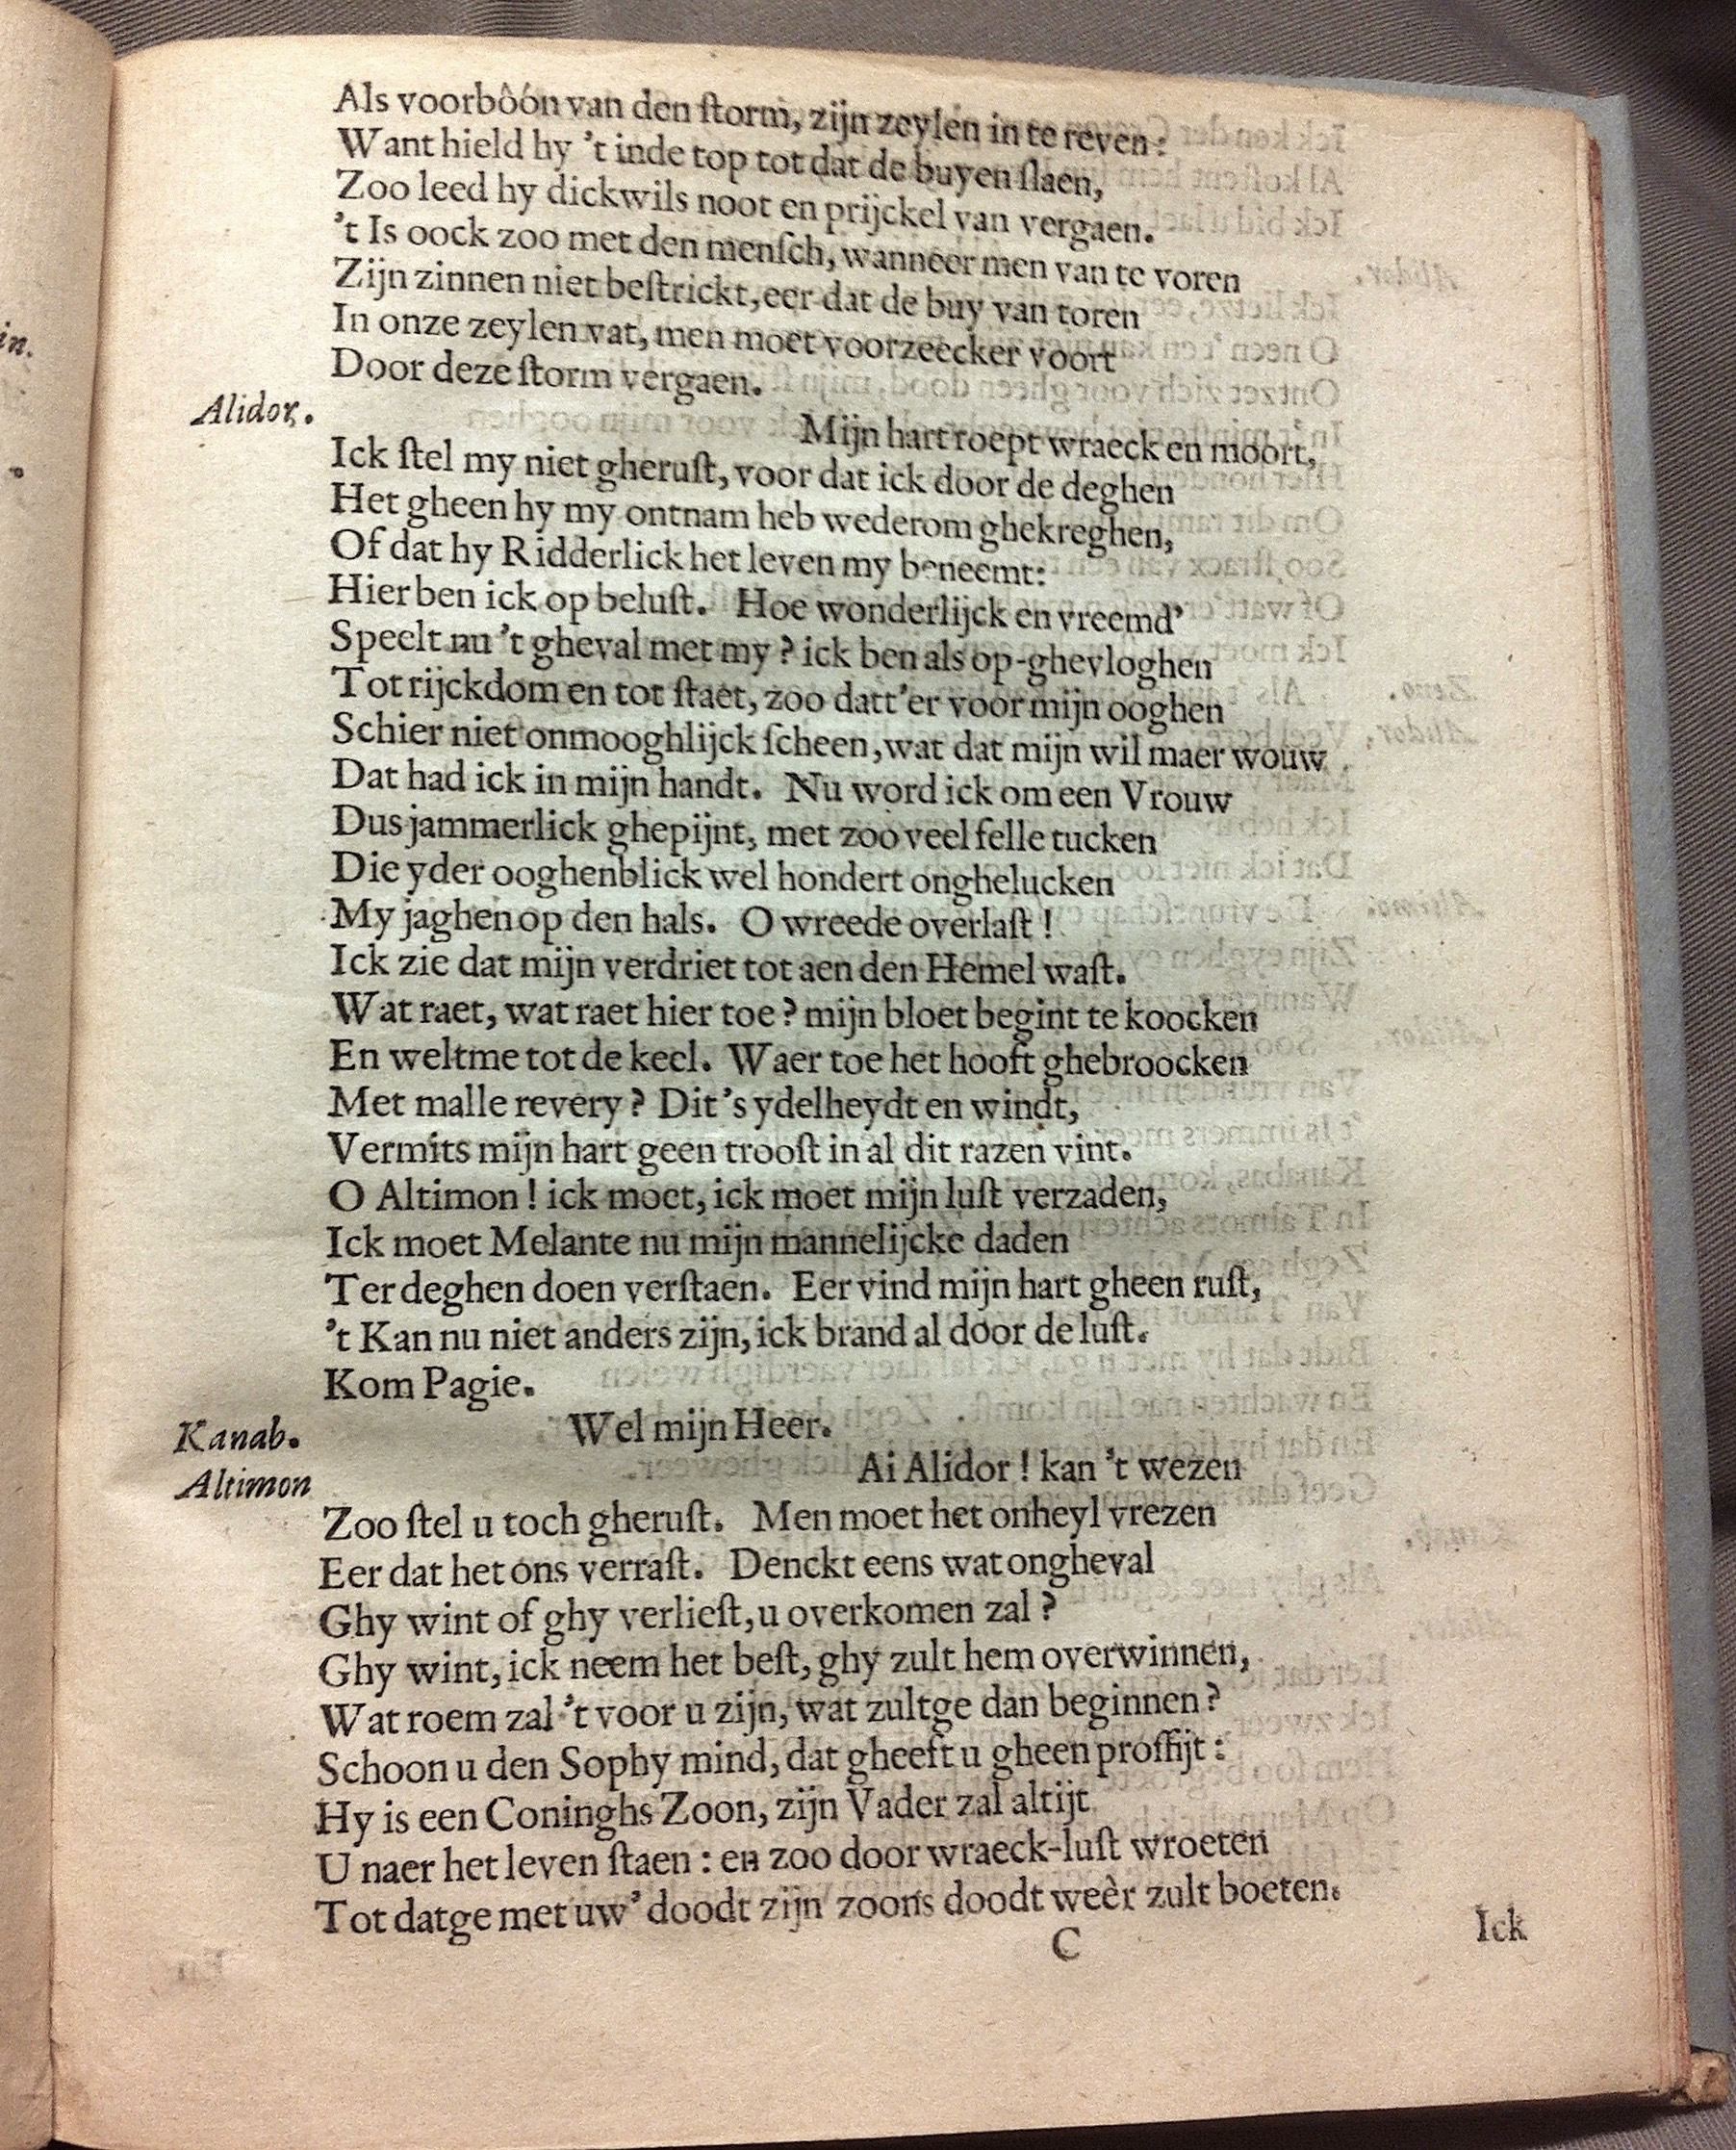 Als voorbôón van den ſtorm, zijn zeylen in te reven:
Want hield hy 't inde top tot dat de buyen ſlaen,
Zoo leed hy dickwils noot en prijckel van vergaen.
't Is oock zoo met den menſch, wanneer men van te voren
Zijn zinnen niet beſtrickt, eer dat de buy van toren
In onze zeylen vat, men moet voorzeecker voort
Door deze ſtorm vergaen.
Alidor. Mijn hart roept wraeck en moort,
Ick ſtel my niet gheruſt, voor dat ick door de deghen
Het gheen hy my ontnam heb wederom ghekreghen,
Of dat hy Ridderlick het leven my beneemt:
Hier ben ick op beluſt. Hoe wonderlijck en vreemd'
Speelt nu 't gheval met my? ick ben als op-ghevloghen
Tot rijckdom en tot ſtaet, zoo datt'er voor mijn ooghen
Schier niet onmooghlijck ſcheen, wat dat mijn wil maer wouw
Dat had ick in mijn handt. Nu word ick om een Vrouw
Dus jammerlick ghepijnt, met zoo veel felle tucken
Die yder ooghenblick wel hondert onghelucken
My jaghen op den hals. O wreede overlaſt!
Ick zie dat mijn verdriet tot aen den Hemel waſt.
Wat raet, wat raet hier toe? mijn bloet begint te koocken
En weltme tot de keel. Waer toe het hooft ghebroocken
Met malle revery? Dit's ydelheydt en windt,
Vermits mijn hart geen trooſt in al dit razen vint.
O Altimon! ick moet, ick moet mijn luſt verzaden,
Ick moet Melante nu mijn mannelijcke daden
Ter deghen doen verſtaen. Eer vind mijn hart gheen ruſt,
't Kan nu niet anders zijn, ick brand al door de luſt.
Kom Pagie.
Kanab. Wel mijn Heer.
Altimon Ai Alidor! kan 't wezen
Zoo ſtel u toch gheruſt. Men moet het onheyl vrezen
Eer dat het ons verraſt. Denckt eens wat ongheval
Ghy wint of ghy verlieſt, u overkomen zal?
Ghy wint, ick neem het beſt, ghy zult hem overwinnen,
Wat roem zal 't voor u zijn, wat zultge dan beginnen?
Schoon u den Sophy mind, dat gheeft u gheen proffijt:
Hy is een Coninghs Zoon, zijn Vader zal altijt
U naer het leven ſtaen: en zoo door wraeck-luſt wroeten
Tot datge met uw' doodt zijn zoons doodt weèr zult boeten.
C Ick